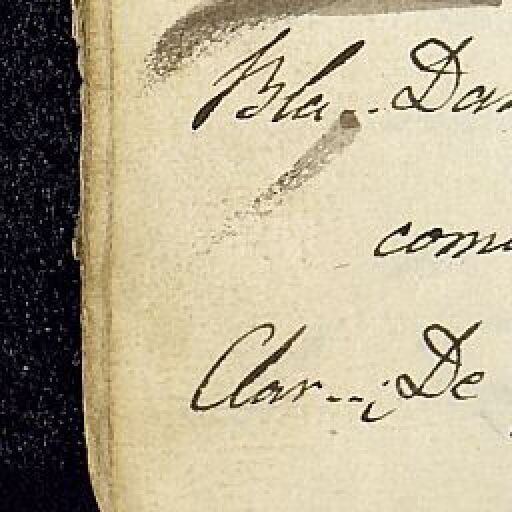 Bla... Dan
com
Clar--¿De